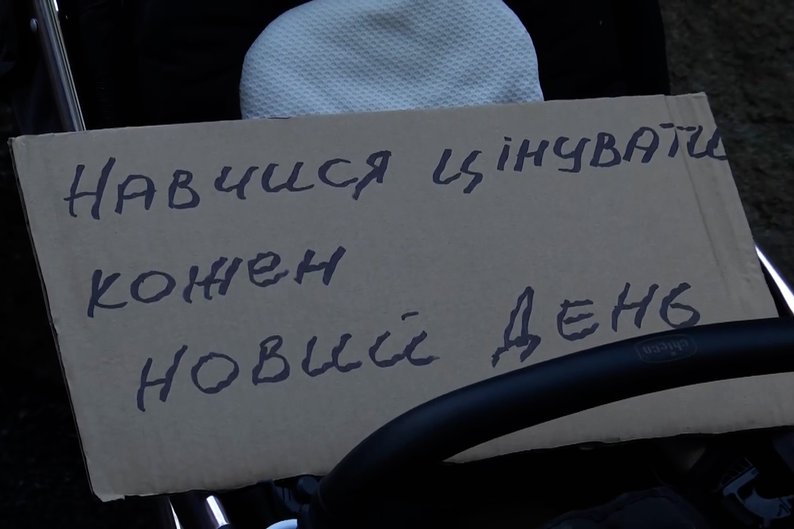 Навчися цінувати
кожен
новий день
chicco